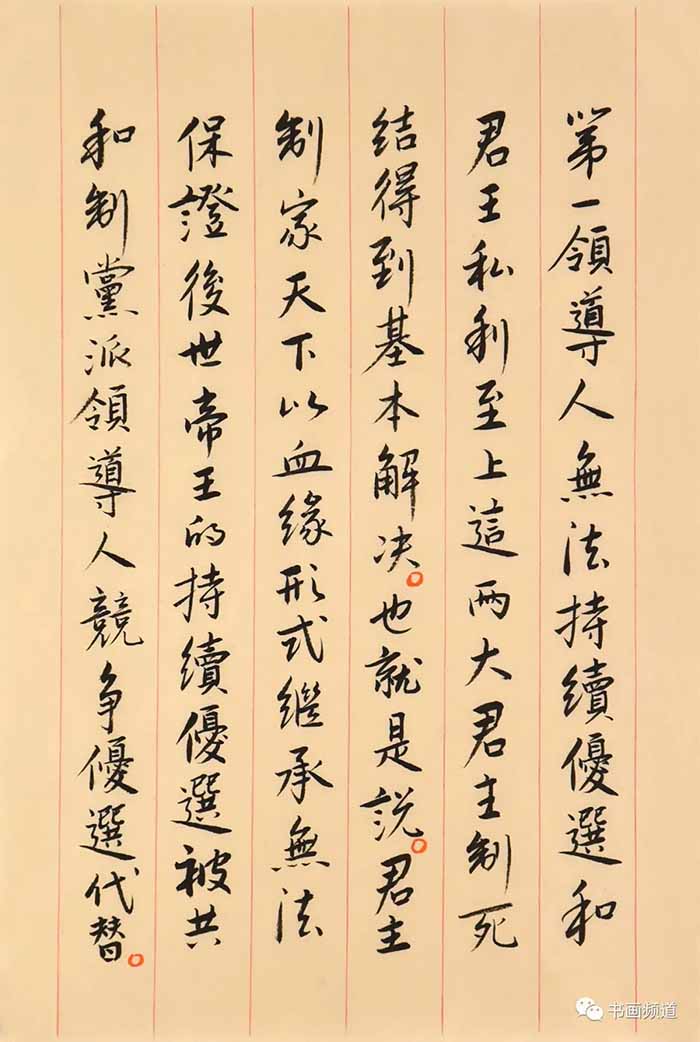 第一領導人無法持續優選和
君王私利至上這兩大君主制死
结得到基本解决。也就是説。君主
制家天下以血缘形式继承無法
保證後世帝王的持續優選被共
和制黨派領導人競争優選代替。
书画频道